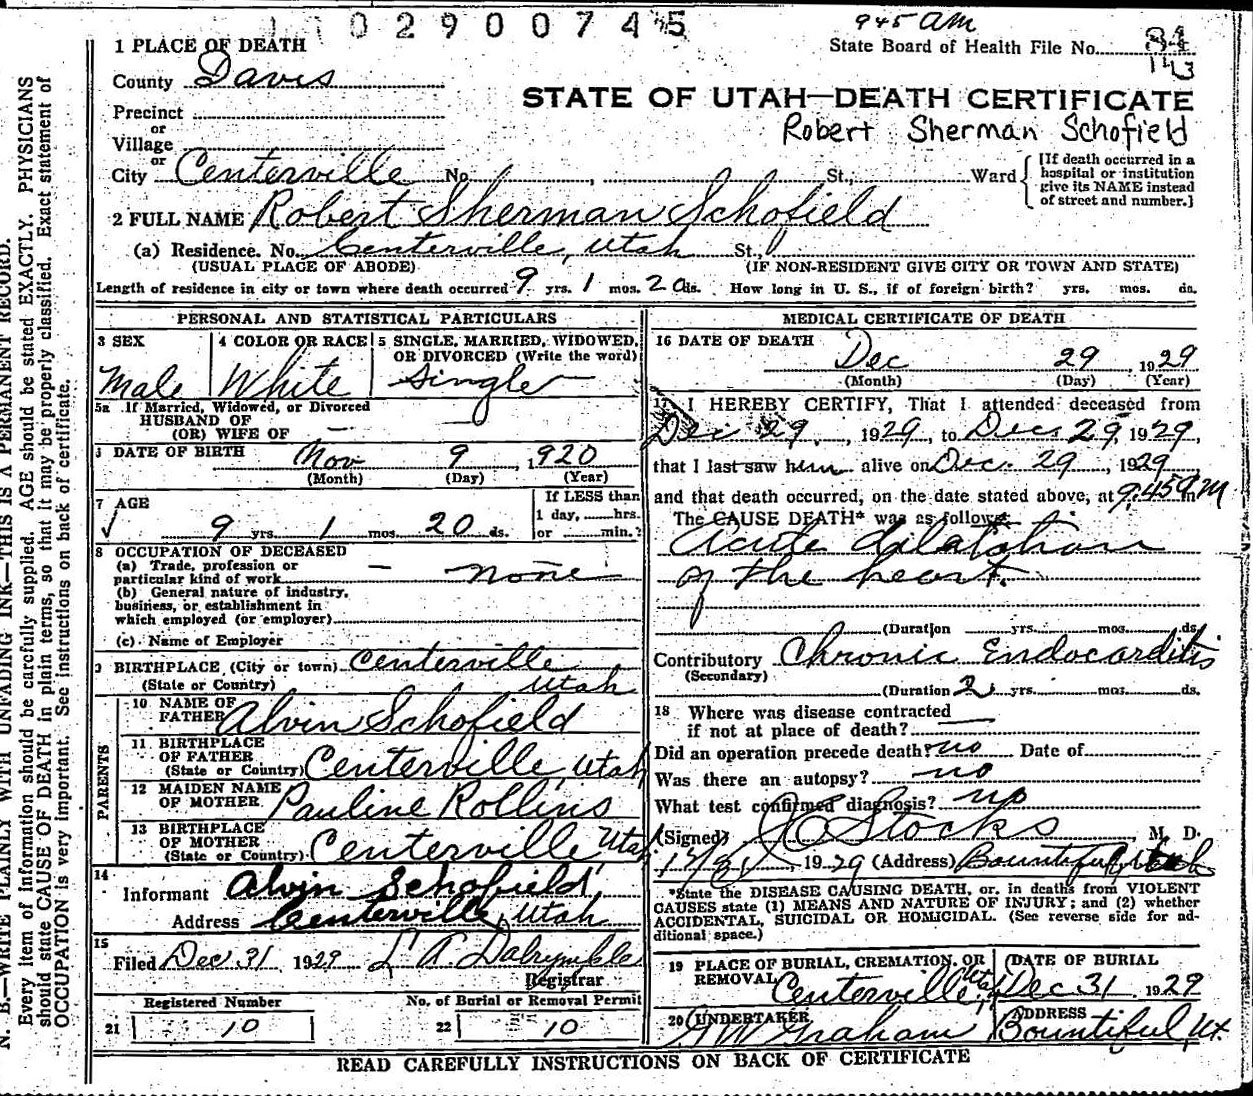 0 2 9 0 0 7 4 5
945 AM
1 PLACE OF DEATH
State Board of Health File No. 84
143
County Davis
STATE OF UTAH—DEATH CERTIFICATE
Precinct
or
Robert Sherman Schofield
Village
or
City Centerville No. , St., Ward
[If death occurred in a
hospital or institution
give its NAME instead
of street and number.]
2 FULL NAME Robert Sherman Schofield
(a) Residence. No. Centerville, Utah St.,
(USUAL PLACE OF ABODE) (IF NON-RESIDENT GIVE CITY OR TOWN AND STATE)
Length of residence in city or town where death occurred 9 yrs. 1 mos. 20 ds. How long in U. S., if of foreign birth? yrs. mos. ds.
PERSONAL AND STATISTICAL PARTICULARS
3 SEX 4 COLOR OR RACE 5 SINGLE, MARRIED, WIDOWED,
OR DIVORCED (Write the word)
Male White Single
5a If Married, Widowed, or Divorced
HUSBAND OF
(OR) WIFE OF —
DATE OF BIRTH Nov 9, 1920
(Month) (Day) (Year)
7 AGE If LESS than
1 day, hrs.
9 yrs. 1 mos. 20 ds. or min.?
8 OCCUPATION OF DECEASED
(a) Trade, profession or
particular kind of work — none
(b) General nature of industry,
business, or establishment in
which employed (or employer)
(c) Name of Employer
9 BIRTHPLACE (City or town) Centerville
(State or Country) Utah
PARENTS
10 NAME OF
FATHER Alvin Schofield
11 BIRTHPLACE
OF FATHER
(State or Country) Centerville, Utah
12 MAIDEN NAME
OF MOTHER Pauline Rollins
13 BIRTHPLACE
OF MOTHER
(State or Country) Centerville Utah
14
Informant Alvin Schofield,
Address Centerville, Utah
15
Filed Dec 31 1929 L A Dalrymple
Registrar
Registered Number No. of Burial or Removal Permit
21 10 22 10
MEDICAL CERTIFICATE OF DEATH
16 DATE OF DEATH
Dec 29, 1929
(Month) (Day) (Year)
17 I HEREBY CERTIFY, That I attended deceased from
Dec 29, 1929, to Dec 29, 1929,
that I last saw him alive on Dec. 29, 1929
and that death occurred, on the date stated above, at 9.45 a m
The CAUSE DEATH* was as follows:
Acute dilatation
of the heart.
(Duration yrs. mos. ds.
Contributory Chronic Endocarditis
(Secondary)
(Duration 2 yrs. mos. ds.
18 Where was disease contracted
if not at place of death?
Did an operation precede death? no Date of
Was there an autopsy? no
What test confirmed diagnosis? no
(Signed) Stocks, M. D.
12/31, 1929 (Address) Bountiful, Utah
*State the DISEASE CAUSING DEATH, or, in deaths from VIOLENT
CAUSES state (1) MEANS AND NATURE OF INJURY; and (2) whether
ACCIDENTAL, SUICIDAL OR HOMICIDAL. (See reverse side for ad-
ditional space.)
19 PLACE OF BURIAL, CREMATION, OR
REMOVAL Centerville, Utah
DATE OF BURIAL
Dec 31 1929
20 UNDERTAKER
Graham
ADDRESS
Bountiful, Ut.
READ CAREFULLY INSTRUCTIONS ON BACK OF CERTIFICATE
N. B.—WRITE PLAINLY WITH UNFADING INK—THIS IS A PERMANENT RECORD.
Every item of information should be carefully supplied. AGE should be stated EXACTLY. PHYSICIANS
should state CAUSE OF DEATH in plain terms, so that it may be properly classified. Exact statement of
OCCUPATION is very important. See instructions on back of certificate.